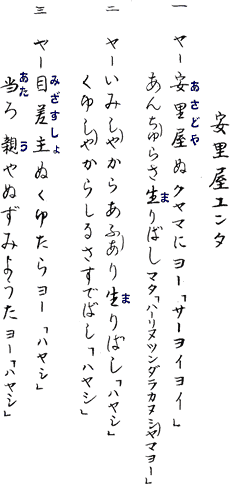 安里屋ユンタ
一 ヤー安里屋ぬクヤマにヨー「サーヨイヨイ」
あんちゅらさ生りばしマタ「ハーリヌツンダラカヌシャマヨー」
二 ヤーいみしゃからあふぁり生りばし「ハヤシ」
くゆしゃからしるさすでばし「ハヤシ」
三 ヤー目差主ぬくゆたらヨー「ハヤシ」
当ろ親やぬずみょうたヨー「ハヤシ」